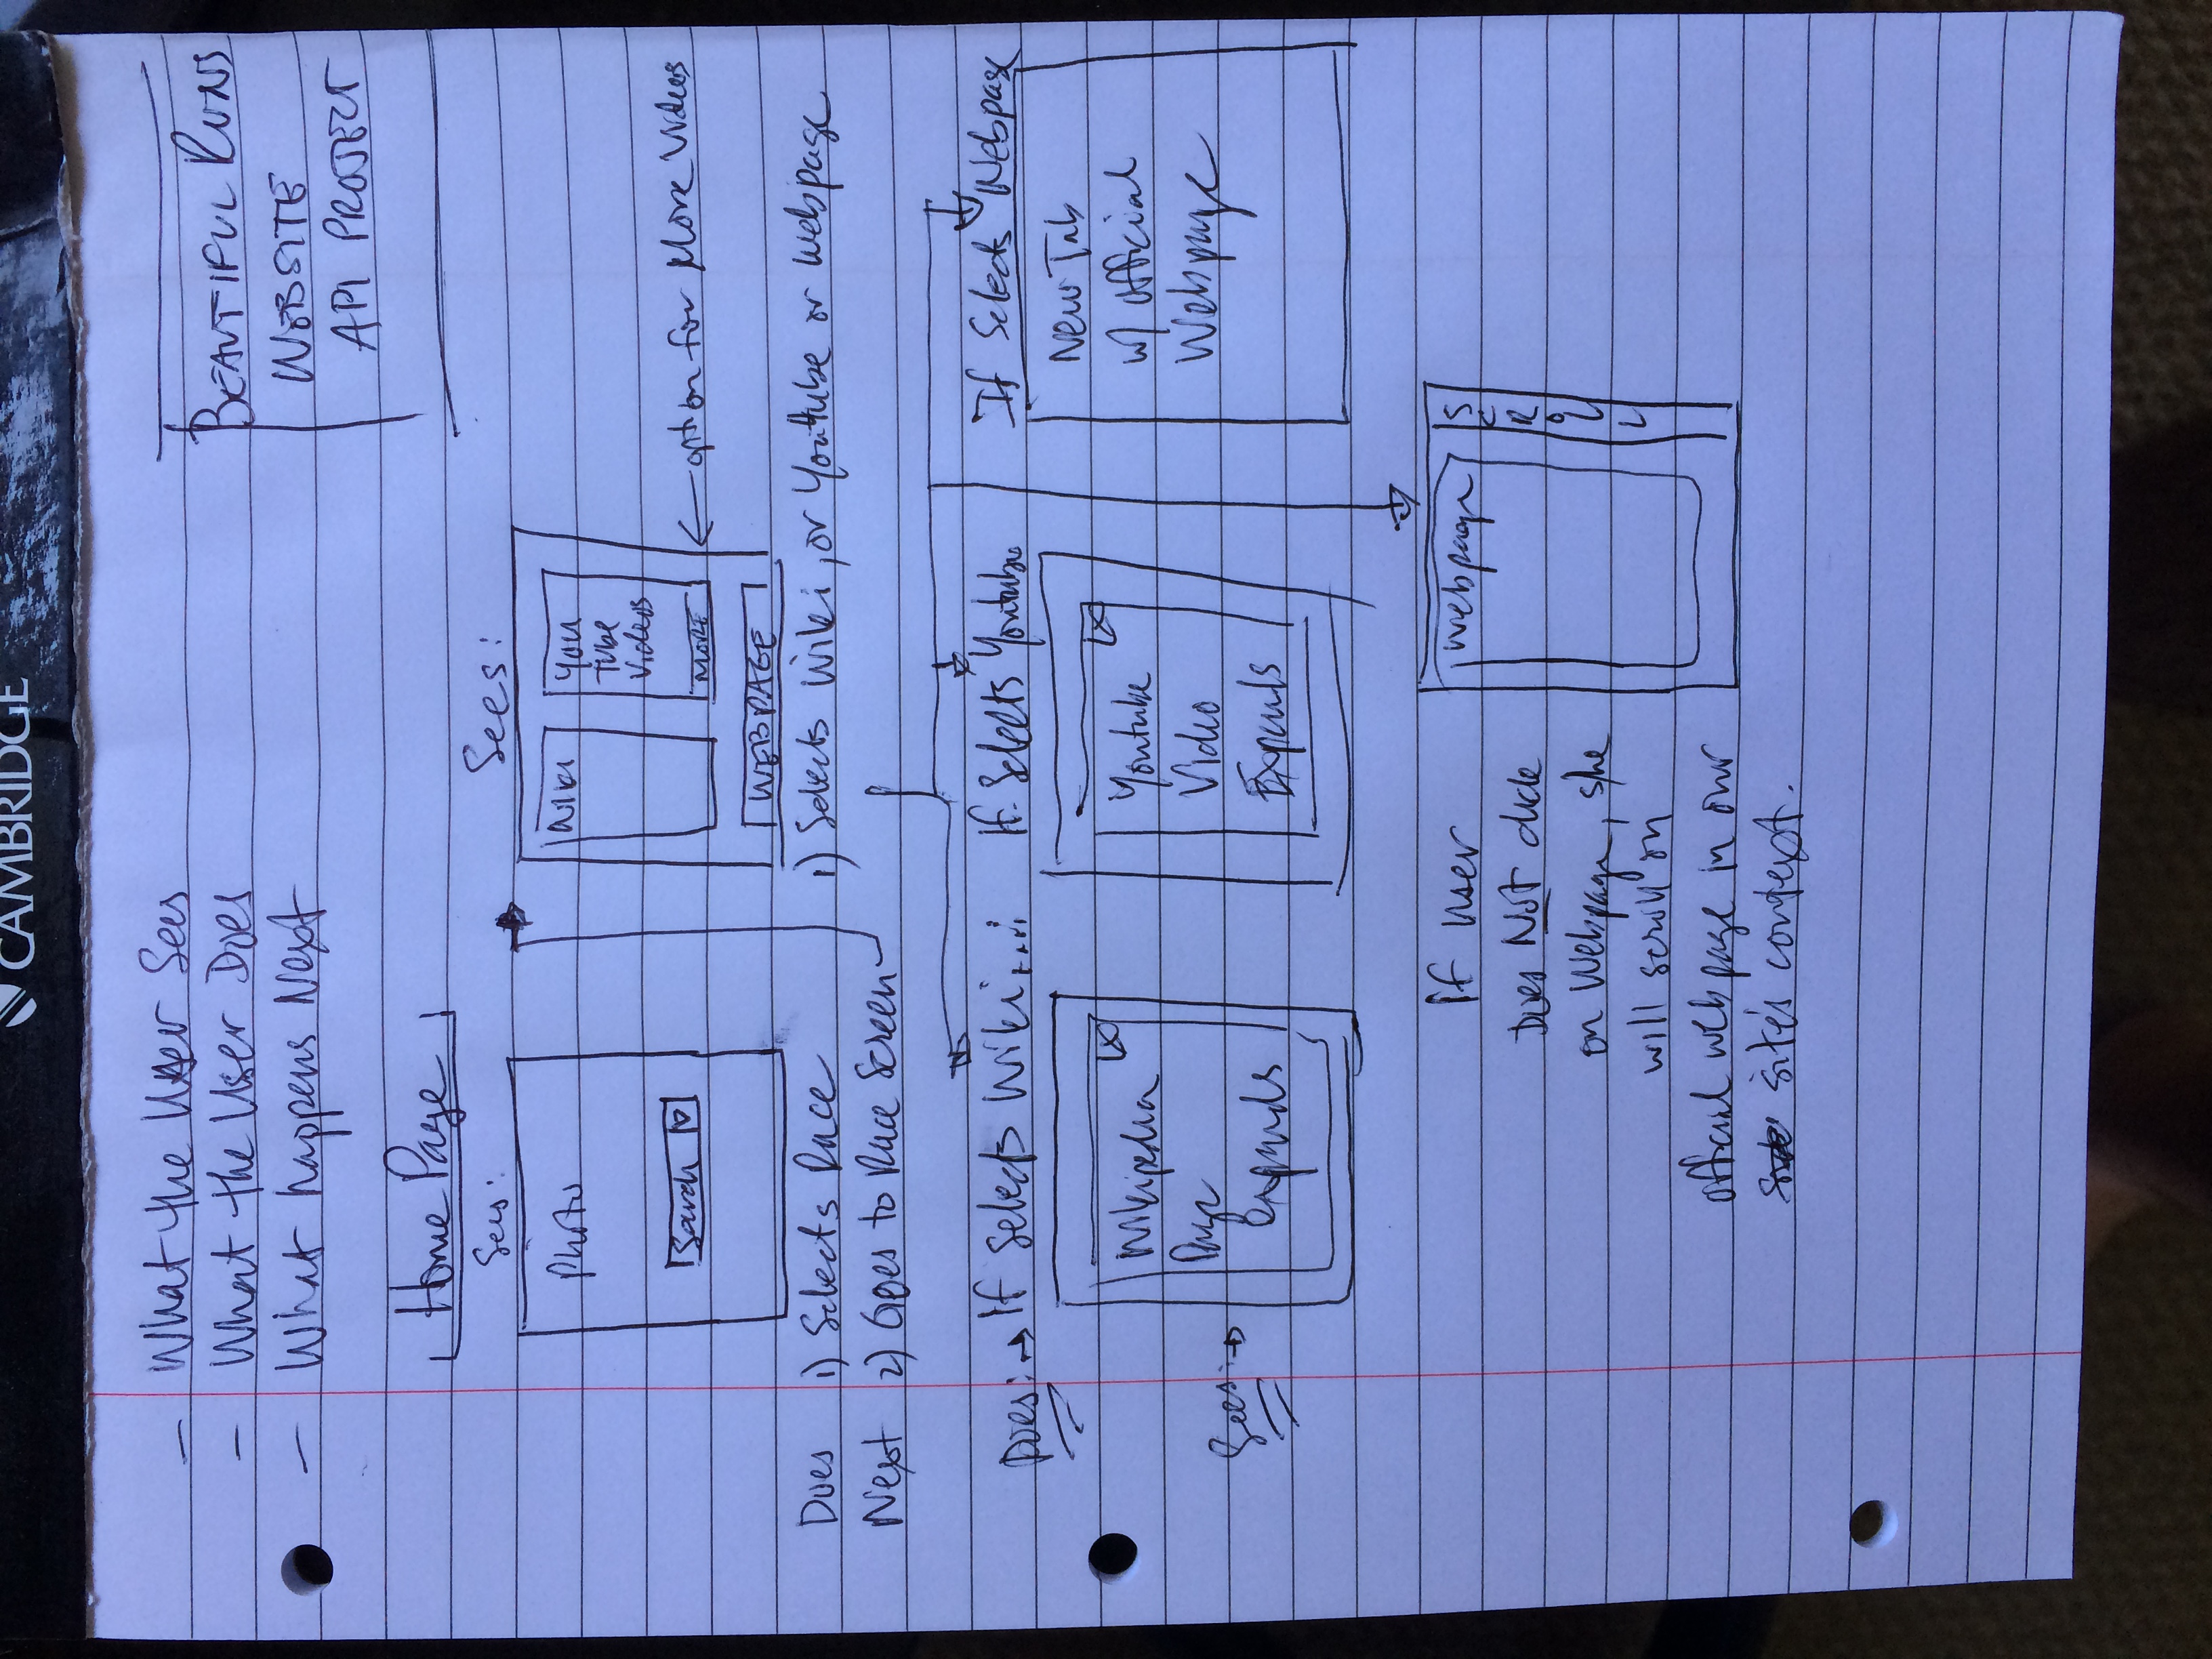 CAMBRIDGE
— What the User Sees
— What the User Does
— What happens Next
BEAUTIFUL RUNS
WEBSITE
API PROJECT
Home Page
Sees:
Photo
Search
Sees:
Wiki
You
Tube
Videos
MORE
← option for More Videos
WEBPAGE
Does 1) Selects Race
Next 2) Goes to Race Screen
1) Selects Wiki, or Youtube or Webpage
Does: → If Selects Wiki....
If Selects Youtube
If Selects Webpage
Sees: →
X
Wikipedia
Page
Expands
X
Youtube
Video
Expands
New Tab
w/ official
Webpage
If user
Does Not click
on Webpage, s/he
will scroll on
official webpage in our
site's context.
Webpage
SCROLL